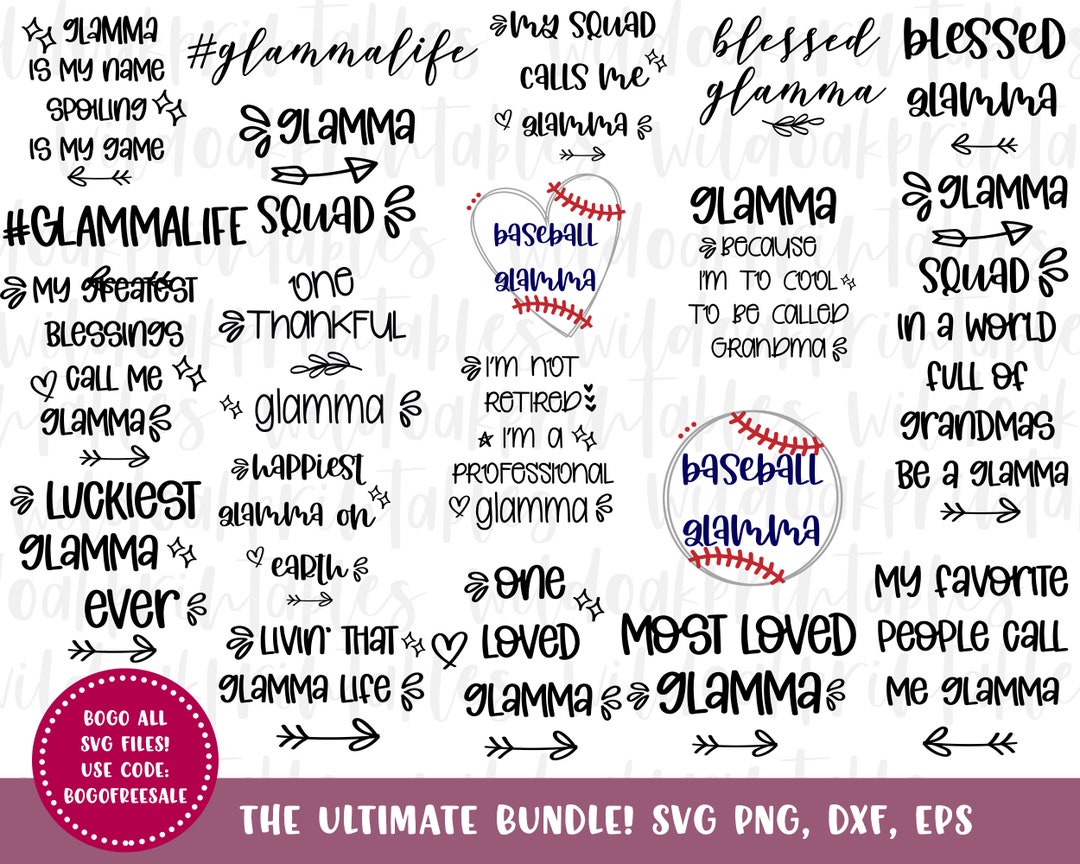 glamma
is my name
spoiling
is my game
#glammalife
my squad
calls me
glamma
blessed
glamma
blessed
glamma
glamma
squad
#GLAMMALIFE
baseball
glamma
glamma
because
I'm to cool
to be called
grandma
glamma
squad
my greatest
blessings
call me
glamma
one
thankful
glamma
I'm not
retired
I'm a
professional
glamma
in a world
full of
grandmas
be a glamma
baseball
glamma
luckiest
glamma
ever
happiest
glamma on
earth
livin' that
glamma life
one
loved
glamma
most loved
glamma
my favorite
people call
me glamma
BOGO ALL
SVG FILES!
USE CODE:
BOGOFREESALE
THE ULTIMATE BUNDLE! SVG PNG, DXF, EPS
wildoakprintables